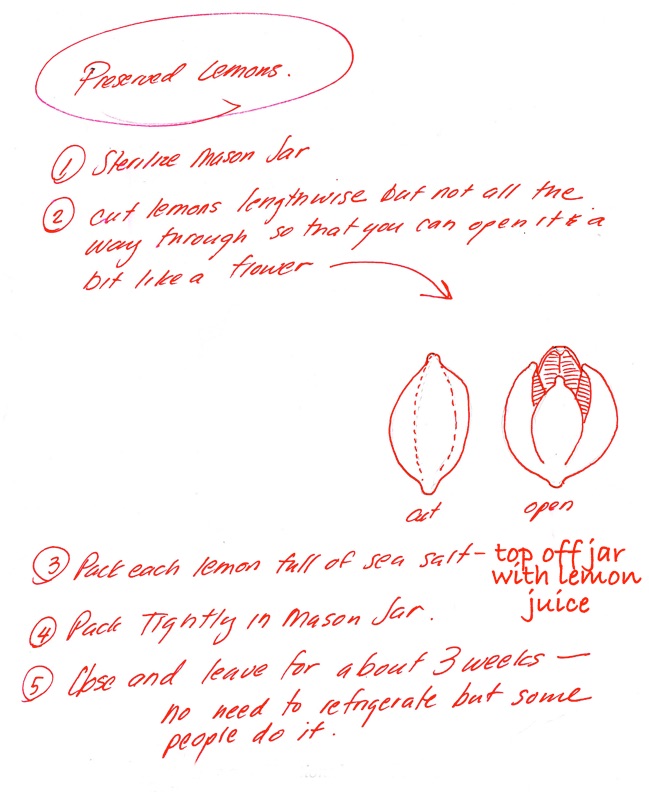 Preserved Lemons.
① Sterilize Mason Jar
② cut lemons lengthwise but not all the
way through so that you can open it a
bit like a flower
cut
open
③ Pack each lemon full of sea salt – top off jar
with lemon
juice
④ Pack Tightly in Mason Jar.
⑤ Close and leave for about 3 weeks —
no need to refrigerate but some
people do it.